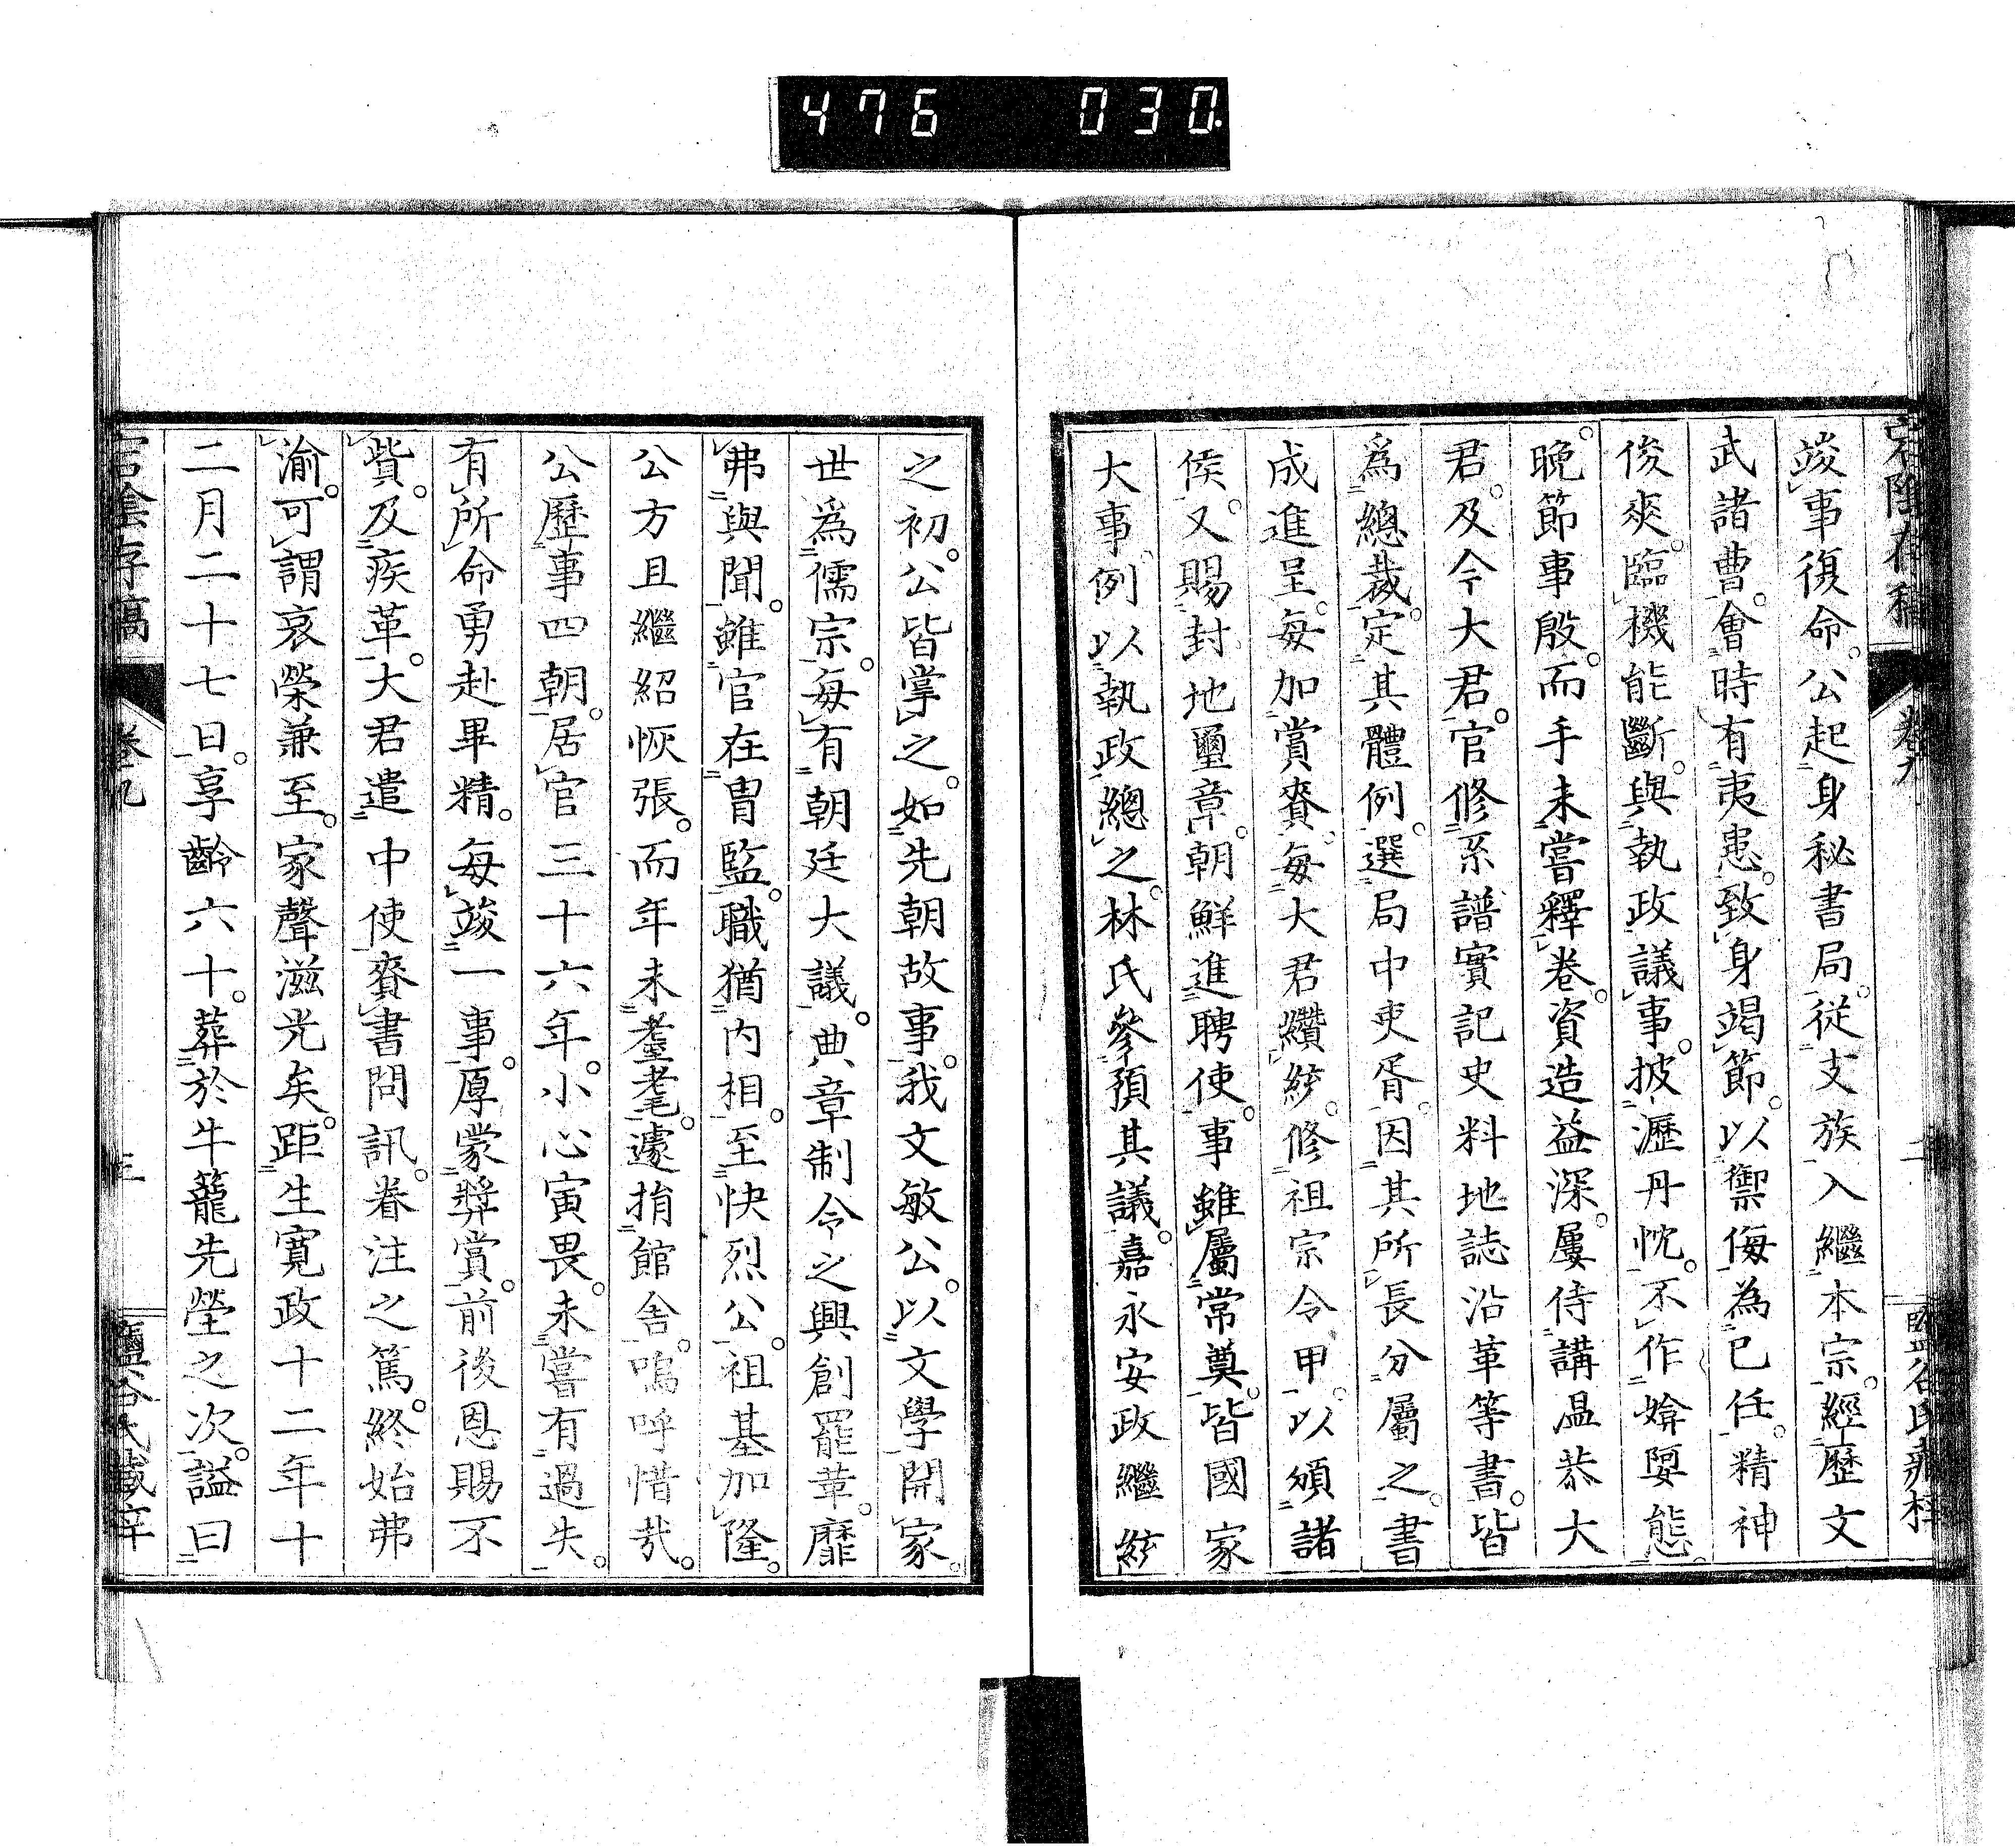 476 030
竣事復命。公起身秘書局。從支族入繼本宗。經歷文
武諸曹。會時有夷患。致身竭節。以禦侮為已任。精神
俊爽。臨機能斷。與執政議事。披瀝丹忱。不作媕娿態。
晩節事殷。而手未嘗釋卷。資造益深。屢侍講温恭大
君。及今大君。官修系譜實記史料地誌沿革等書。皆
爲總裁。定其體例。選局中吏胥。因其所長分屬之。書
成進呈。每加賞賚。每大君纘統。修祖宗令甲。以頒諸
侯。又賜封地璽章。朝鮮進聘使。事雖屬常奠。皆國家
大事例以執政總之。林氏參預其議。嘉永安政繼統
之初。公皆掌之。如先朝故事。我文敏公。以文學開家。
世爲儒宗。每有朝廷大議。典章制令之興創罷革。靡
弗與聞。雖官在胄監。職猶内相。至快烈公。祖基加隆。
公方且繼紹恢張。而年未耋耄。遽捐館舍。嗚呼惜哉。
公歷事四朝。居官三十六年。小心寅畏。未嘗有過失。
有所命勇赴畢精。每竣一事。厚蒙奬賞。前後恩賜不
貲。及疾革。大君遣中使賚書問訊。眷注之篤。終始弗
渝。可謂哀榮兼至。家聲滋光矣。距生寛政十二年十
二月二十七日。享齡六十。葬於牛籠先塋之次。謚曰
宕陰存稿 卷九 三